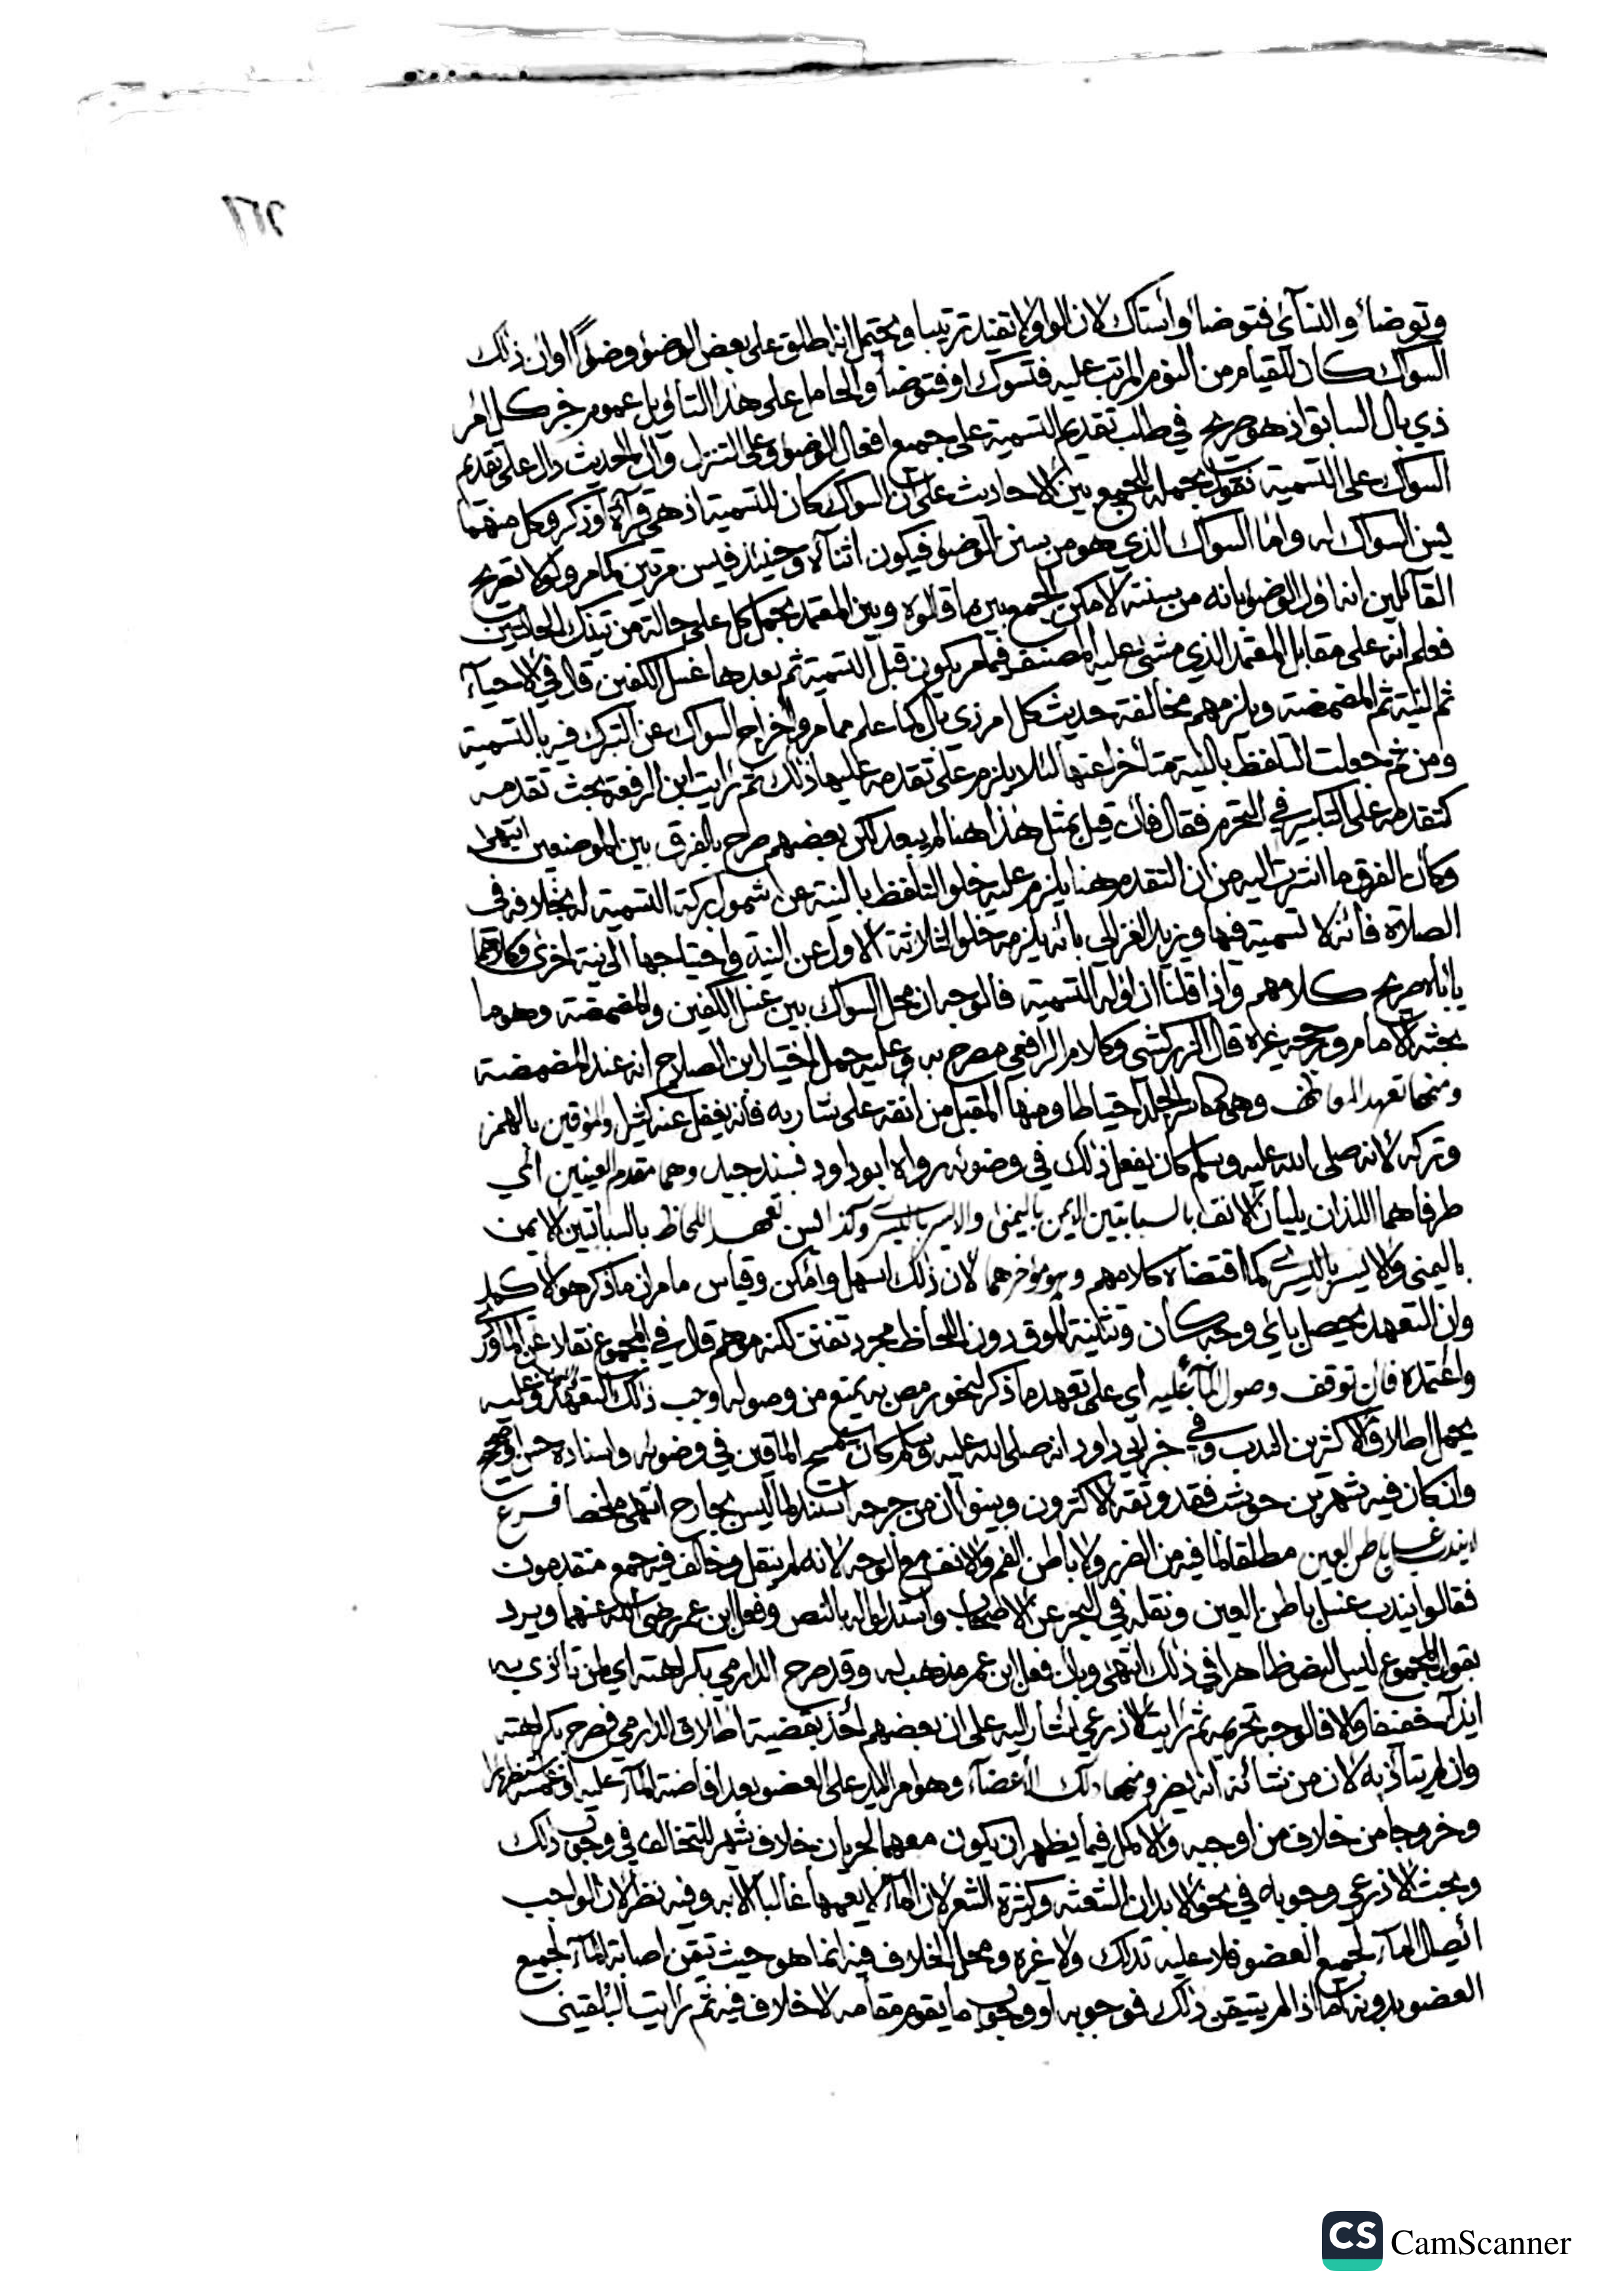 وتوضا والنسآئي فتوضا وأستاك لان الواو لا تفيد ترتيبا ويحتمل انه اطلق على بعض الوضؤ وضوًا او ان ذلك
السواك كان للقيام من النوم المرتب عليه فتسوك او فتوضا والحامل على هذا التاويل عموم خبر كل امر
ذي بال السابق اذ هو صريح في طلب تقديم التسمية على جميع افعال الوضو وعلى التنزل وان الحديث دال على تقديم
السواك على التسمية نقول بحمله للجمع بين الاحاديث على ان السواك كان للتسمية اذ هي قرآة او ذكر وكل منهما
يسن السواك له واما السواك الذي هو من سنن الوضوء فيكون اثنآه وحينئذ فيسن مرتين كما مر ولولا تصريح
القآئلين انه اول الوضؤ بانه من سننه لامكن الجمع بين ما قالوه وبين المعتمد بحمل كل على حالة من تينك الحالتين
فعلم انه على مقابل المعتمد الذي مشى عليه المصنف فيما مر يكون قبل التسمية ثم بعدها غسل الكفين قال في الاحيآء
ثم النية ثم المضمضة ويلزمهم مخالفة حديث كل امر ذي بال كما علم مما مر واخراج السواك عن التبرك فيه بالتسمية
ومن ثم جعلت التلفظ بالنية متأخرا عنها لئلا يلزم على تقدمه عليها ذلك ثم رايت ابن الرفعة بحث تقدمه
كتقدمه على التكبير في التحرم فقال فان قيل بمثل هذا هنا لم يبعد لكن بعضهم صرح بالفرق بين الموضعين انتهى
وكأن الفرق ما اشرت اليه من ان التقدم هنا يلزم عليه خلو التلفظ بالنية عن شمول بركة التسمية له بخلافه في
الصلاة فانه لا تسمية فيها ويزيد الغزالي بانه يلزمه خلو الثلاثة الاول عن النية واحتياجها الى نية اخرى وكلاهما
يأباه صريح كلامهم واذا قلنا ان اوله التسمية فالوجه ان محل السواك بين غسل الكفين والمضمضة وهو ما
بحثه الامام ورجحه غيره قال الزركشي وكلام الرافعي مصرح به وعليه حمل اختيار ابن الصلاح انه عند المضمضة
ومنها تعهد المعاطف وهي مكاسر الجلد احتياطا ومنها المقبل من انفه على شاربه فانه يغفل عنه كثيرا والمؤقين بالهمز
وتركه لانه صلى الله عليه وسلم كان يفعل ذلك في وضوئه رواه ابو داود بسند جيد وهما مقدم العينين أي
طرفاهما اللذان يليان الانف بالسبابتين الايمن باليمنى والايسر باليسرى وكذا يسن تعهد اللحاظ بالسبابتين الايمن
باليمنى والايسر باليسرى كما اقتضاه كلامهم وهو مؤخرهما لان ذلك اسهل وامكن وقياس ما مر ان ما ذكر هو الاكمل
وان التعهد يحصل باي وجه كان وتثنية الموق دون اللحاظ مجرد تفنن لكنه موهم قال في المجموع نقلا عن الماوردي
واعتمده فان توقف وصول المآء عليه اي على تعهد ما ذكر لنحو رمص به يمنع من وصوله وجب ذلك التعهد وعليه
يحمل اطلاق الاكثرين الندب وفي خبر ابي داود انه صلى الله عليه وسلم كان يمسح الماقين في وضوئه واسناده حسن او صحيح
وان كان فيه شهر بن حوشب فقد وثقه الاكثرون وبينوا ان من جرحه استند لما ليس بجارح انتهى ملخصا فرع
لا يندب غسل باطن العين مطلقا لما فيه من الضرر ولا باطن الفم والانف مع الوجه لانه لم ينقل وخالف فيه جمع متقدمون
فقالوا يندب غسل باطن العين ونقله في البحر عن الاصحاب واستدلوا له بالنص وفعل ابن عمر رضي الله عنهما ويرد
بقول المجموع ليس النص ظاهرا في ذلك انتهى وبان فعل ابن عمر مذهب له وقد صرح الدارمي بكراهته اي لمن تأذى به
ايذآء خفيفا والا فالوجه تحريمه ثم رايت الاذرعي اشار اليه على ان بعضهم أخذ بقضية اطلاق الدارمي فصرح بكراهته
وان لم يتأذ به لان من شأنه انه يضر ومنها دلك الأعضآء وهو امرار اليد على العضو بعد افاضة المآء عليه او غمسه استظهارا
وخروجا من خلاف من اوجبه والاكمل فيما يظهر ان يكون معهما لجريان خلاف شهير للمخالف في وجوب ذلك
وبحث الاذرعي وجوبه في نحو الابدان الشعثه وكثيرة الشعر لان المآء لا يعمها غالبا الا به وفيه نظر لان الواجب
ائصال المآء لجميع العضو فلا عليه بذاك ولا غيره ومحل الخلاف فيه انما هو حيث تيقن اصابة المآء لجميع
العضو بدونه اما اذا لم يتيقن ذلك فوجوبه او وجوب ما يقوم مقامه لا خلاف فيه ثم رايت البلقيني
CS CamScanner